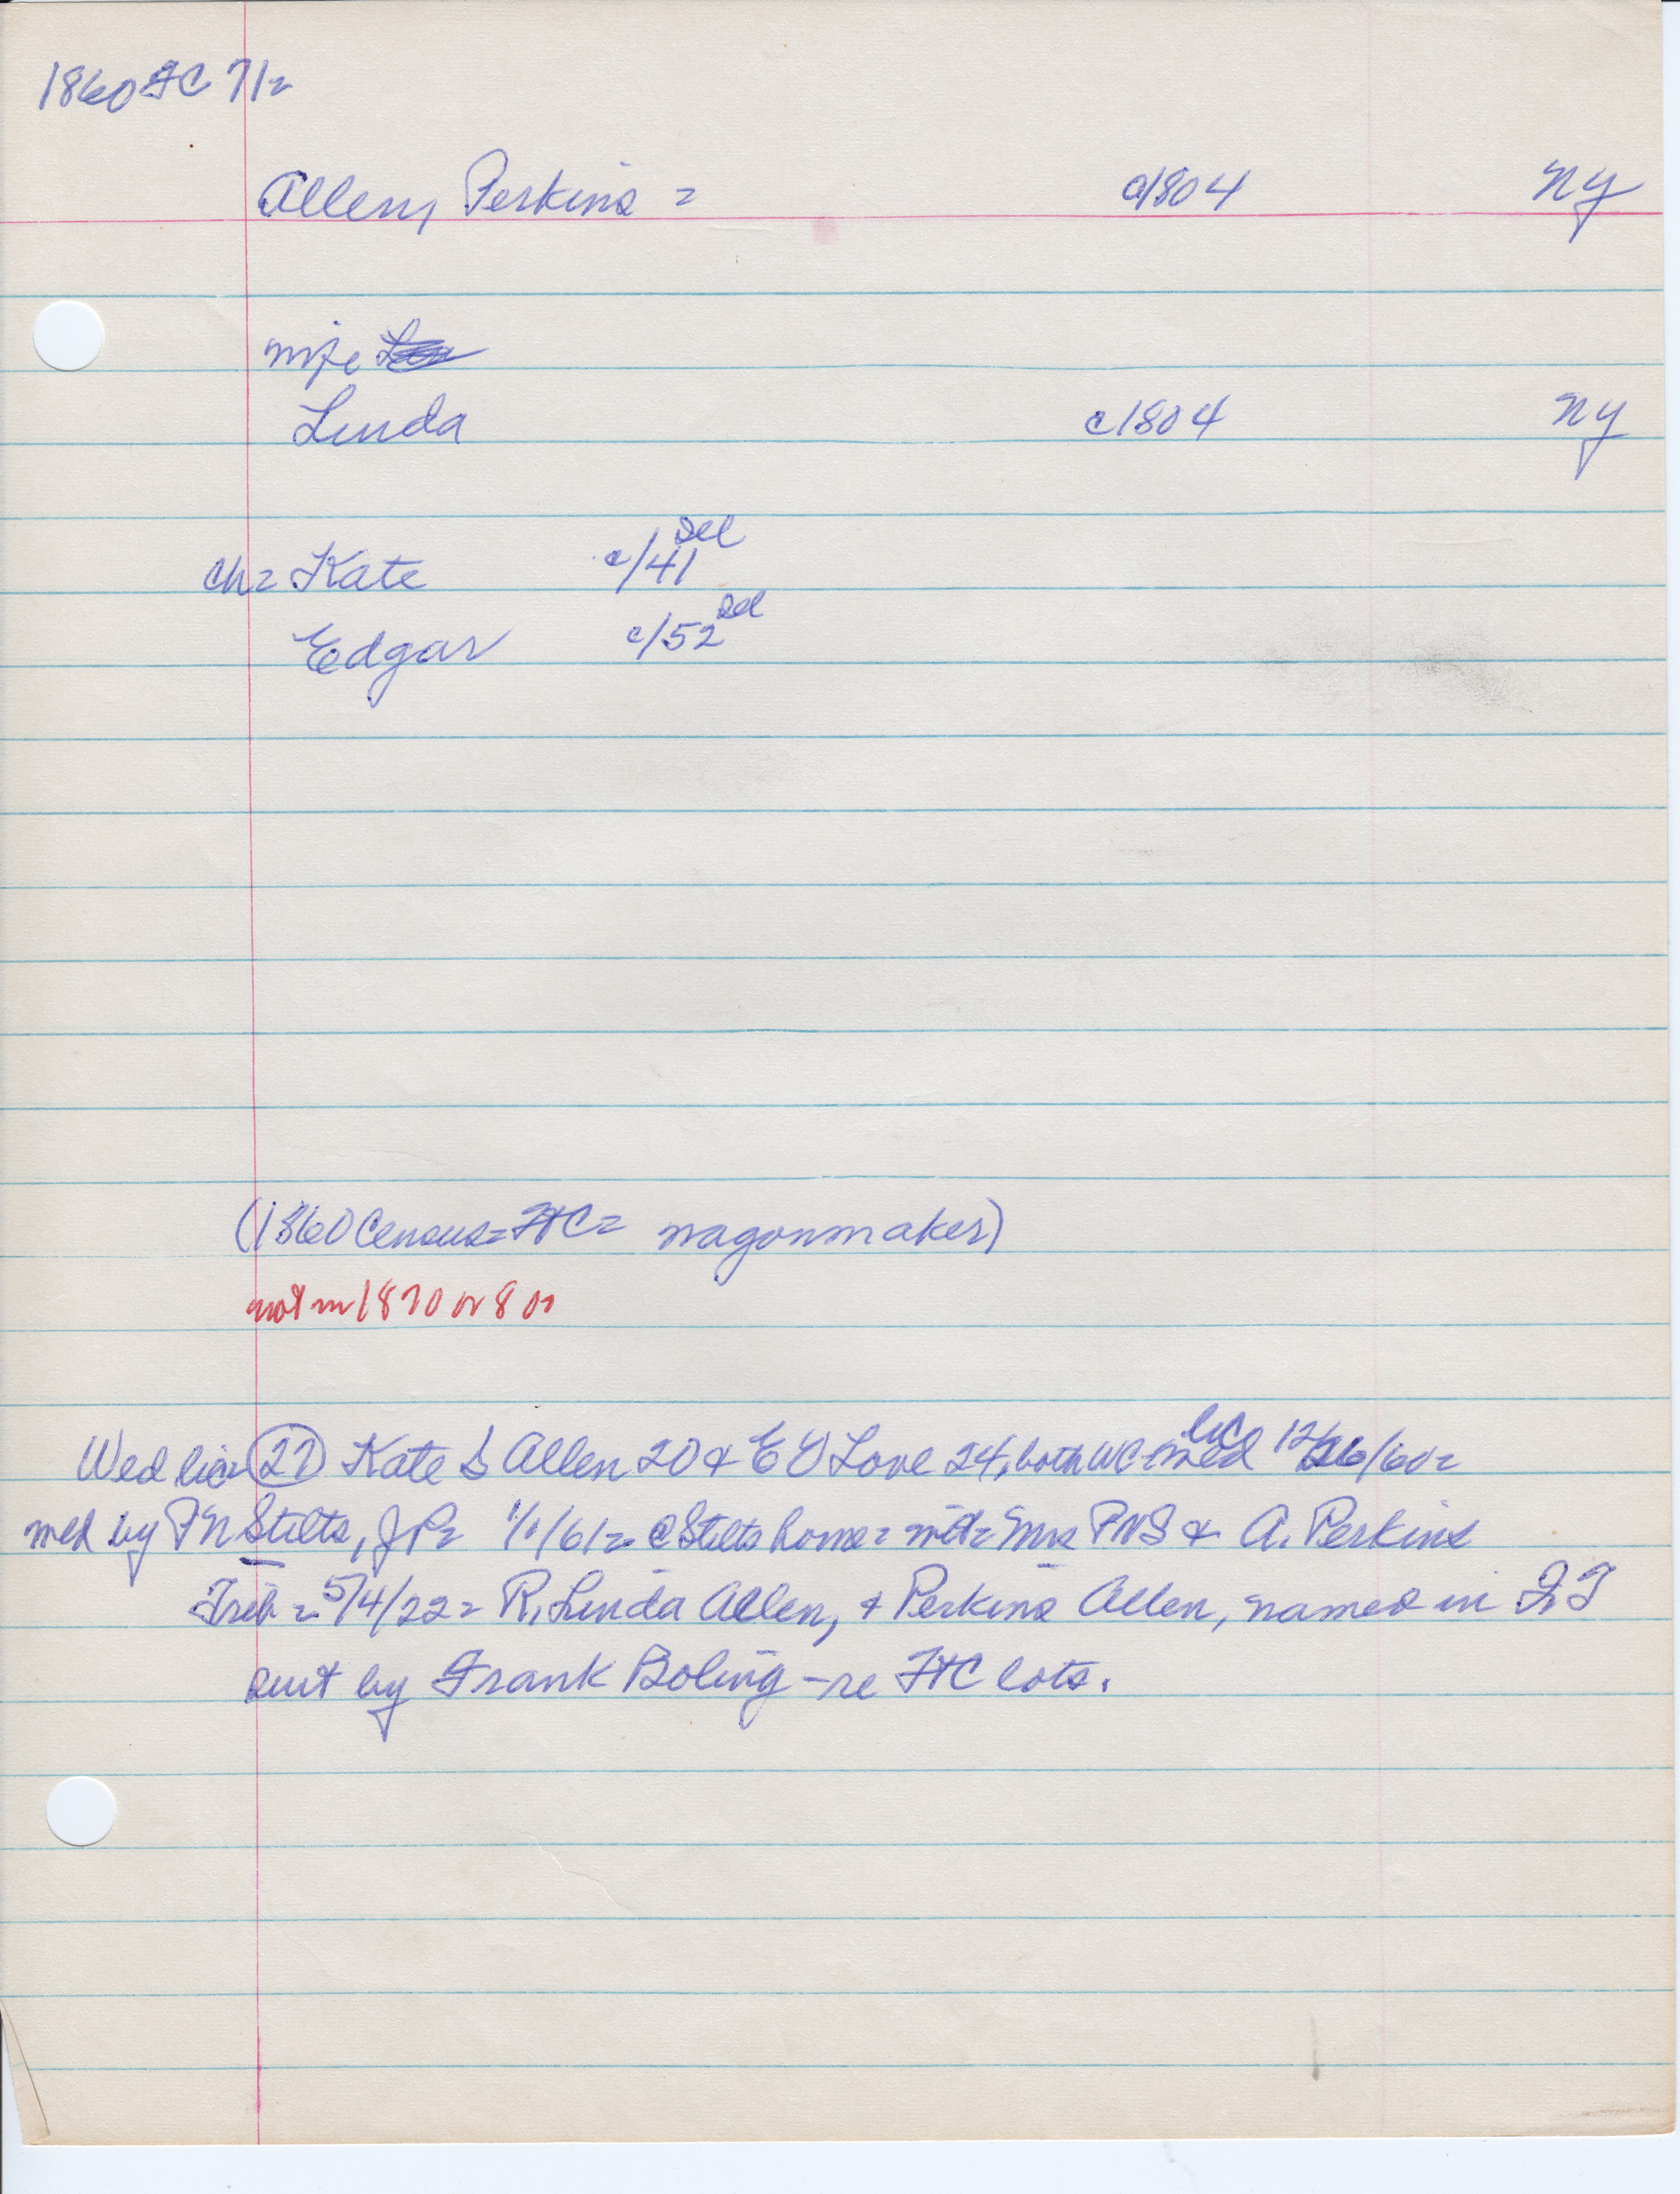 1860 FC 712
Allen, Perkins = c1804 NY
wife
Linda c1804 NY
ch= Kate c/41 Ill
Edgar c/52 Ill
(1860 Census= FtC= wagonmaker)
not in 1870 or 80=
Wed lic= 27 Kate S Allen 20 & E Love 24, both WC lic 12/26/60=
med by Stilts, JP= 1/1/61= @ Stilts home= wit= Mrs PNS & A. Perkins
Trib = 5/4/22= R. Linda Allen, & Perkins Allen, named in Q.T
suit by Frank Boling - re FtC lots.